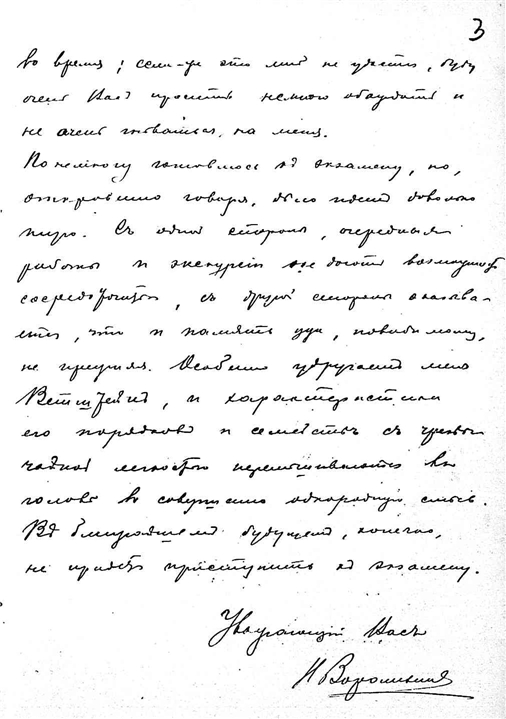 3
во время; если-же это мне не удастся, буду
очень Вас просить немного обождать и
не очень гневаться на меня.
Понемногу готовлюсь к экзамену, но,
откровенно говоря, дело идет довольно
туго. Съ одной стороны, очередныя
работы и экскурсіи не даютъ возможность
сосредоточиться, съ другой стороны оказыва-
ется, что и память уже, повидимому,
не прежняя. Особенно удручает меня
Веттштейнъ, и характеристики
его порядковъ и семействъ съ чрезвы-
чайной легкостью перемешиваются въ
голове въ совершенно однородную смесь.
Въ ближайшемъ будущемъ, конечно,
не придется приступить къ экзамену.
Уважающий Васъ
Н Воронихинъ